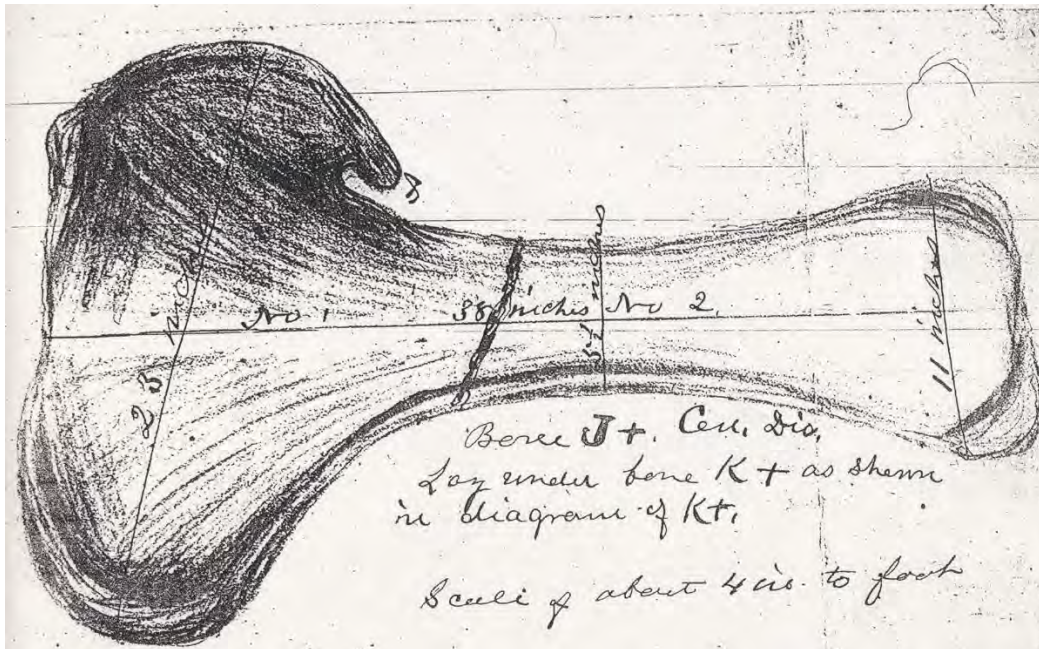 23 inches
No 1
38 inches No 2.
5½ inches
11 inches
Bone J+. Cen. Dis.
Lay under bone K+ as shewn
in diagram of K+.
Scale of about 4 ins. to foot